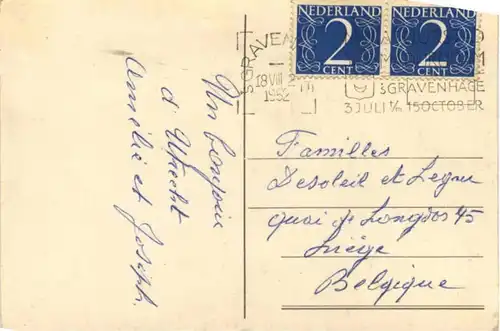 Un bonjour
d'Utrecht
Amélie et Joseph.
NEDERLAND
2
CENT
NEDERLAND
2
CENT
18 VIII
1952
'sGRAVENHAGE
3 JULI t/m 15 OCTOBER
Familles
Desoleil et
quai de Longdos 45
Liège
Belgique